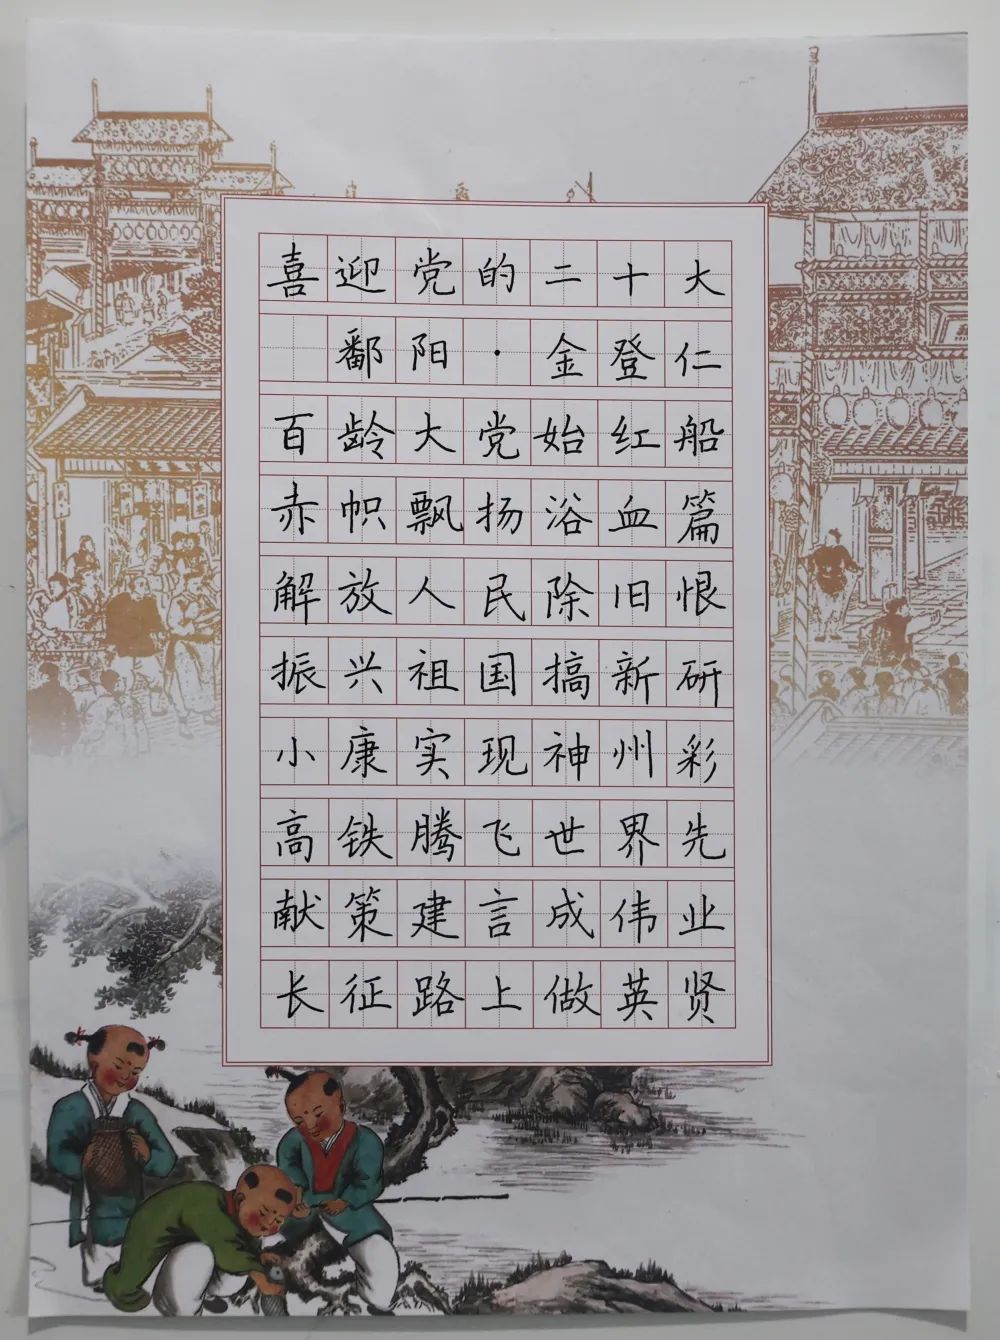 喜迎党的二十大
鄱阳·金登仁
百龄大党始红船
赤帜飘扬浴血篇
解放人民除旧恨
振兴祖国搞新研
小康实现神州彩
高铁腾飞世界先
献策建言成伟业
长征路上做英贤